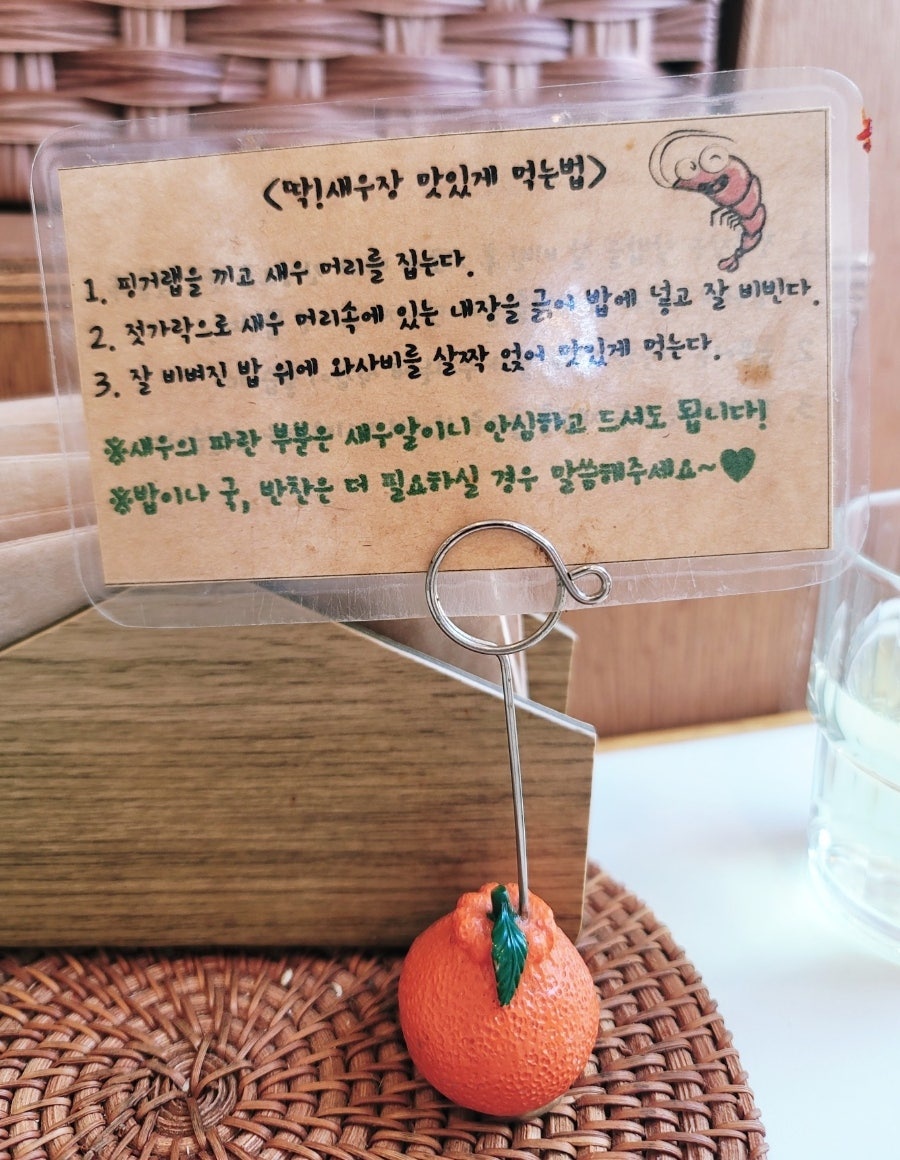 <딱!새우장 맛있게 먹는법>
1. 핑거랩을 끼고 새우 머리를 집는다.
2. 젓가락으로 새우 머리속에 있는 내장을 긁어 밥에 넣고 잘 비빈다.
3. 잘 비벼진 밥 위에 와사비를 살짝 얹어 맛있게 먹는다.
※새우의 파란 부분은 새우알이니 안심하고 드셔도 됩니다!
※밥이나 국, 반찬은 더 필요하실 경우 말씀해주세요~♥